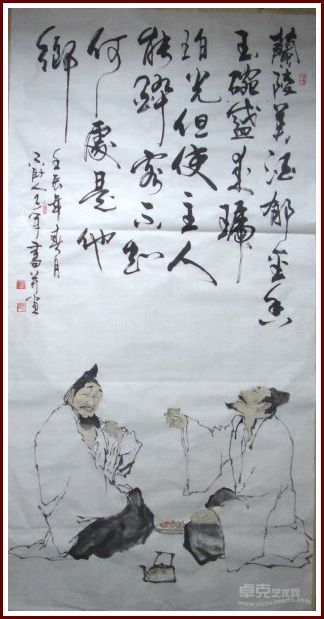 蘭陵美酒郁金香
玉碗盛来琥
珀光但使主人
能醉客不知
何處是他
鄉
壬辰年春月
卓克艺术网